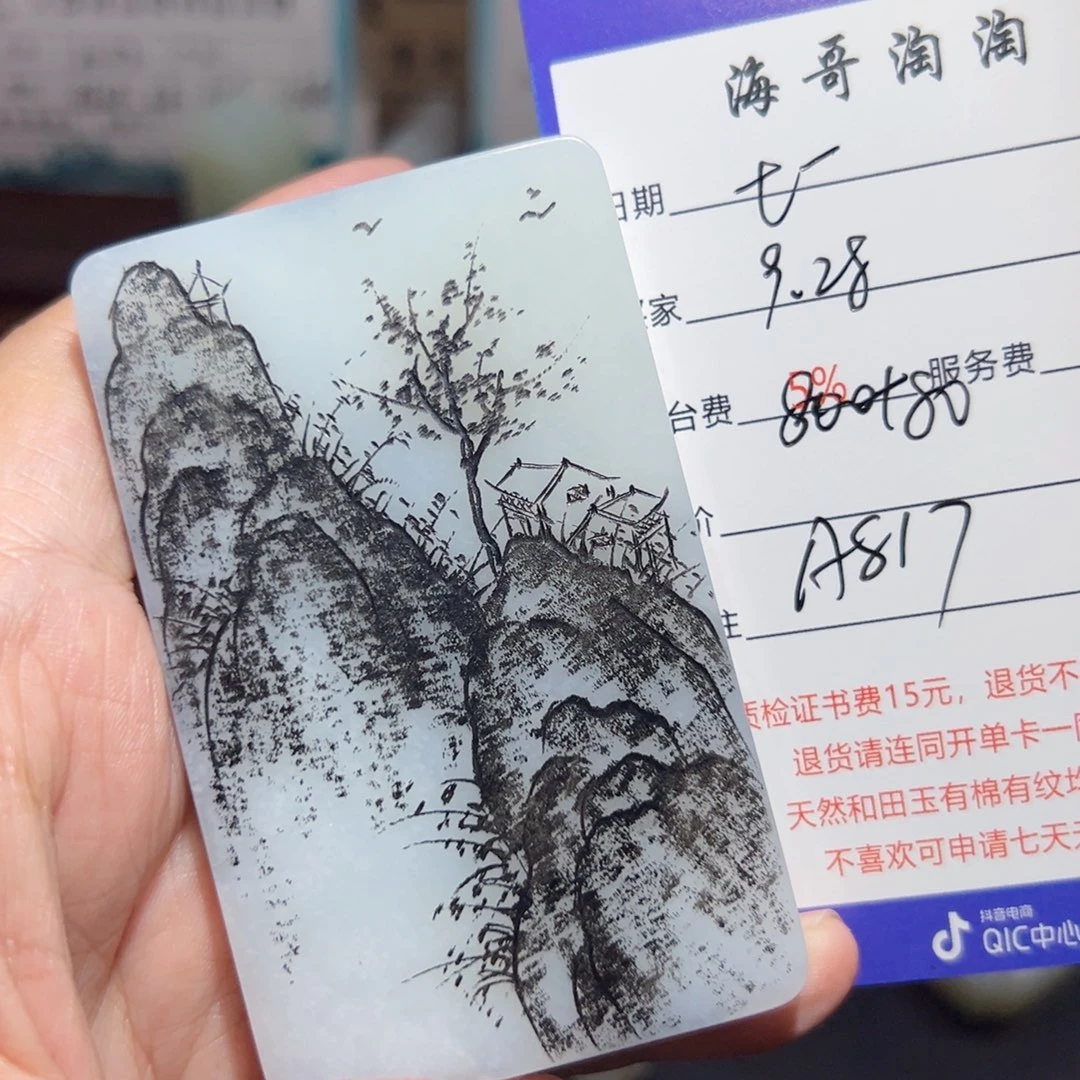 海哥淘淘
日期 七
家 9.28
台费 5% 800+80 服务费
介 A817
质检证书费15元，退货不
退货请连同开单卡一
天然和田玉有棉有纹
不喜欢可申请七天
抖音电商
QIC中心